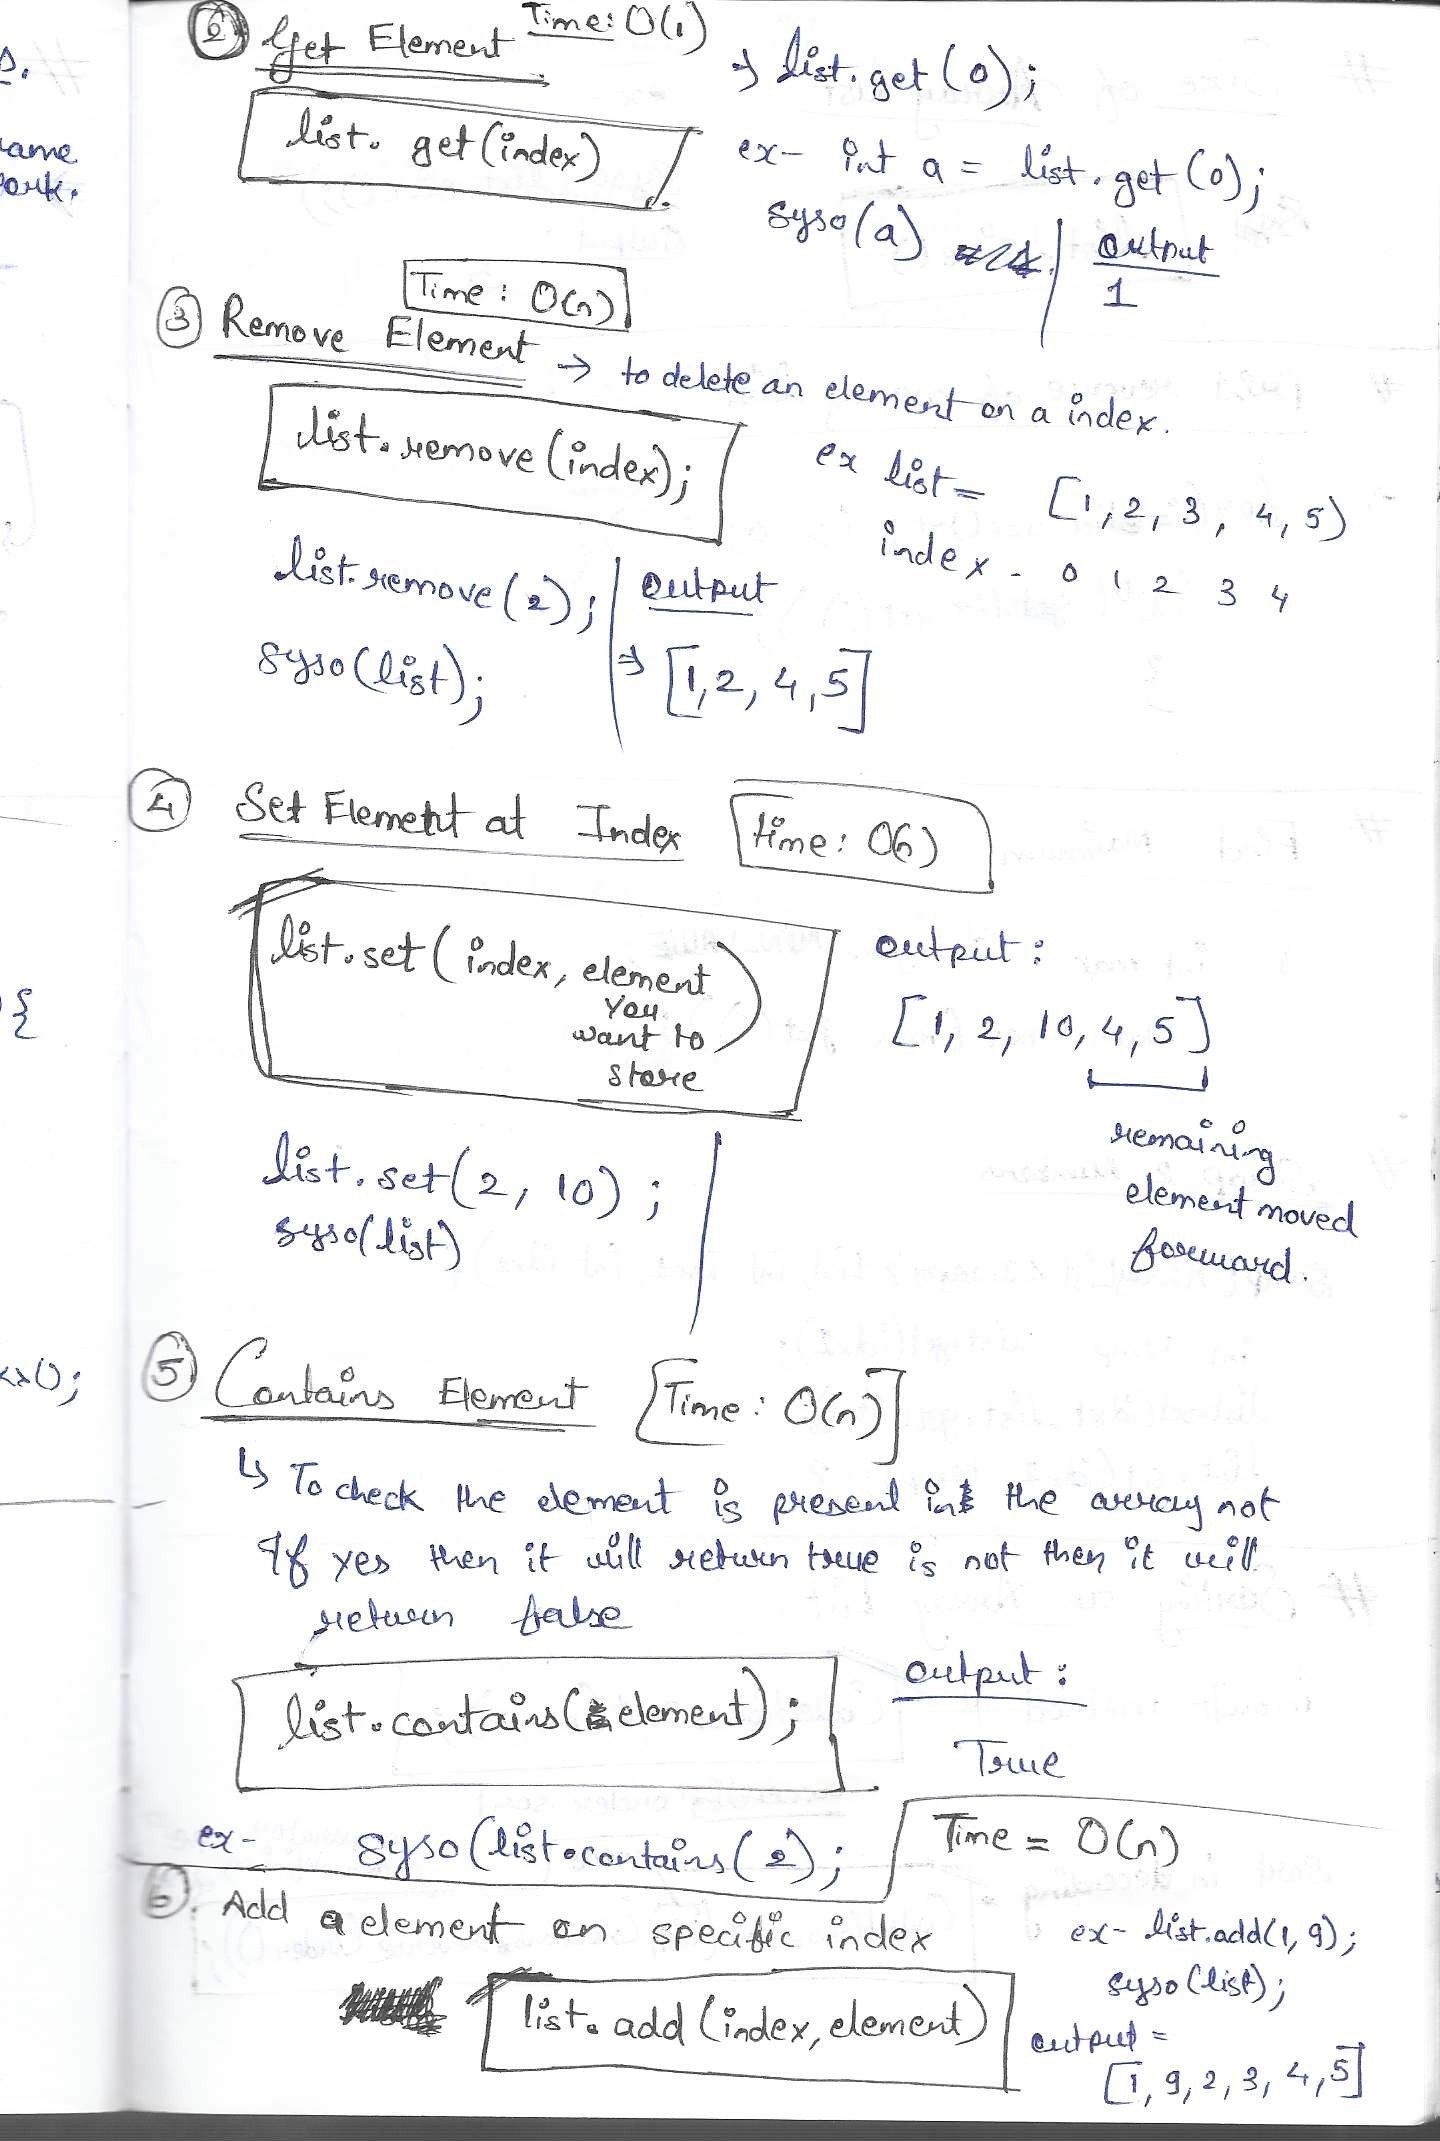 s.
name
work.
{
<>();
② Get Element Time: O(1)
list. get(index)
⇒ list.get(0);
ex- int a = list.get(0);
syso(a)
output
1
Time: O(n)
③ Remove Element → to delete an element on a index.
list.remove(index);
ex list = [1, 2, 3, 4, 5)
index - 0 1 2 3 4
list.remove(2);
syso(list);
output
⇒ [1,2, 4,5]
④ Set Element at Index time: O(n)
list.set( index, element
You
want to
store
)
output:
[1, 2, 10, 4, 5]
remaining
element moved
forward.
list.set(2, 10);
syso(list)
⑤ Contains Element [Time: O(n)]
↳ To check the element is present in the array not
If yes then it will return true is not then it will
return false
list.contains(element);
output:
True
ex- syso(list.contains(2);
Time = O(n)
⑥. Add a element on specific index
list.add(index, element)
ex- list.add(1, 9);
syso(list);
output =
[1, 9, 2, 3, 4, 5]